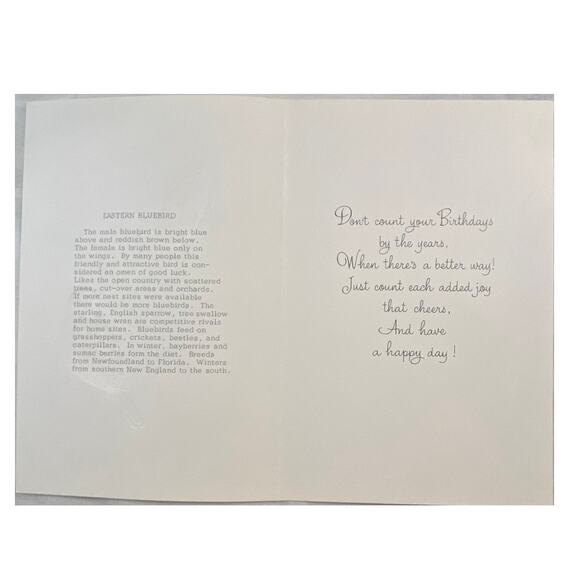 EASTERN BLUEBIRD
The male bluebird is bright blue
above and reddish brown below.
The female is bright blue only on
the wings. By many people this
friendly and attractive bird is con-
sidered an omen of good luck.
Likes the open country with scattered
trees, cut-over areas and orchards.
If more nest sites were available
there would be more bluebirds. The
starling, English sparrow, tree swallow
and house wren are competitive rivals
for home sites. Bluebirds feed on
grasshoppers, crickets, beetles, and
caterpillars. In winter, bayberries and
sumac berries form the diet. Breeds
from Newfoundland to Florida. Winters
from southern New England to the south.
Don't count your Birthdays
by the years,
When there's a better way!
Just count each added joy
that cheers,
And have
a happy day!